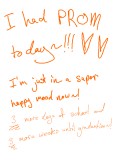 I had PROM
today~!!! ♡♡
I'm just in a super
happy mood now!
more days of school and
more weeks until graduation!